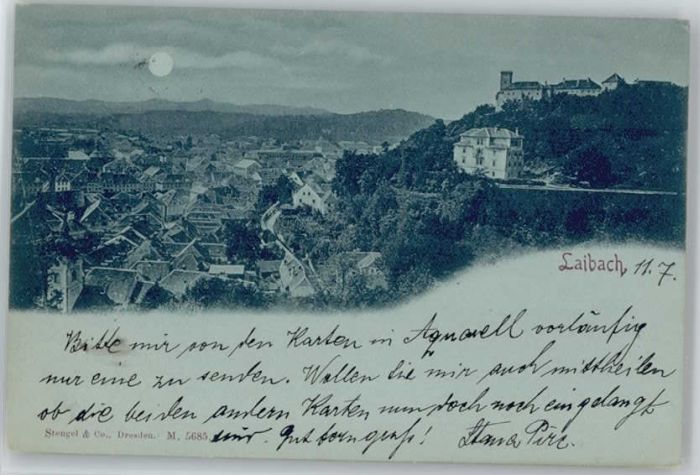 Laibach, 11. 7.
Bitte mir von den Karten in Aquarell vorläufig
nur eine zu senden. Wollen Sie mir auch mittheilen
ob die beiden andern Karten nun doch noch eingelangt
Stengel & Co., Dresden. M. 5685 sind. Gut